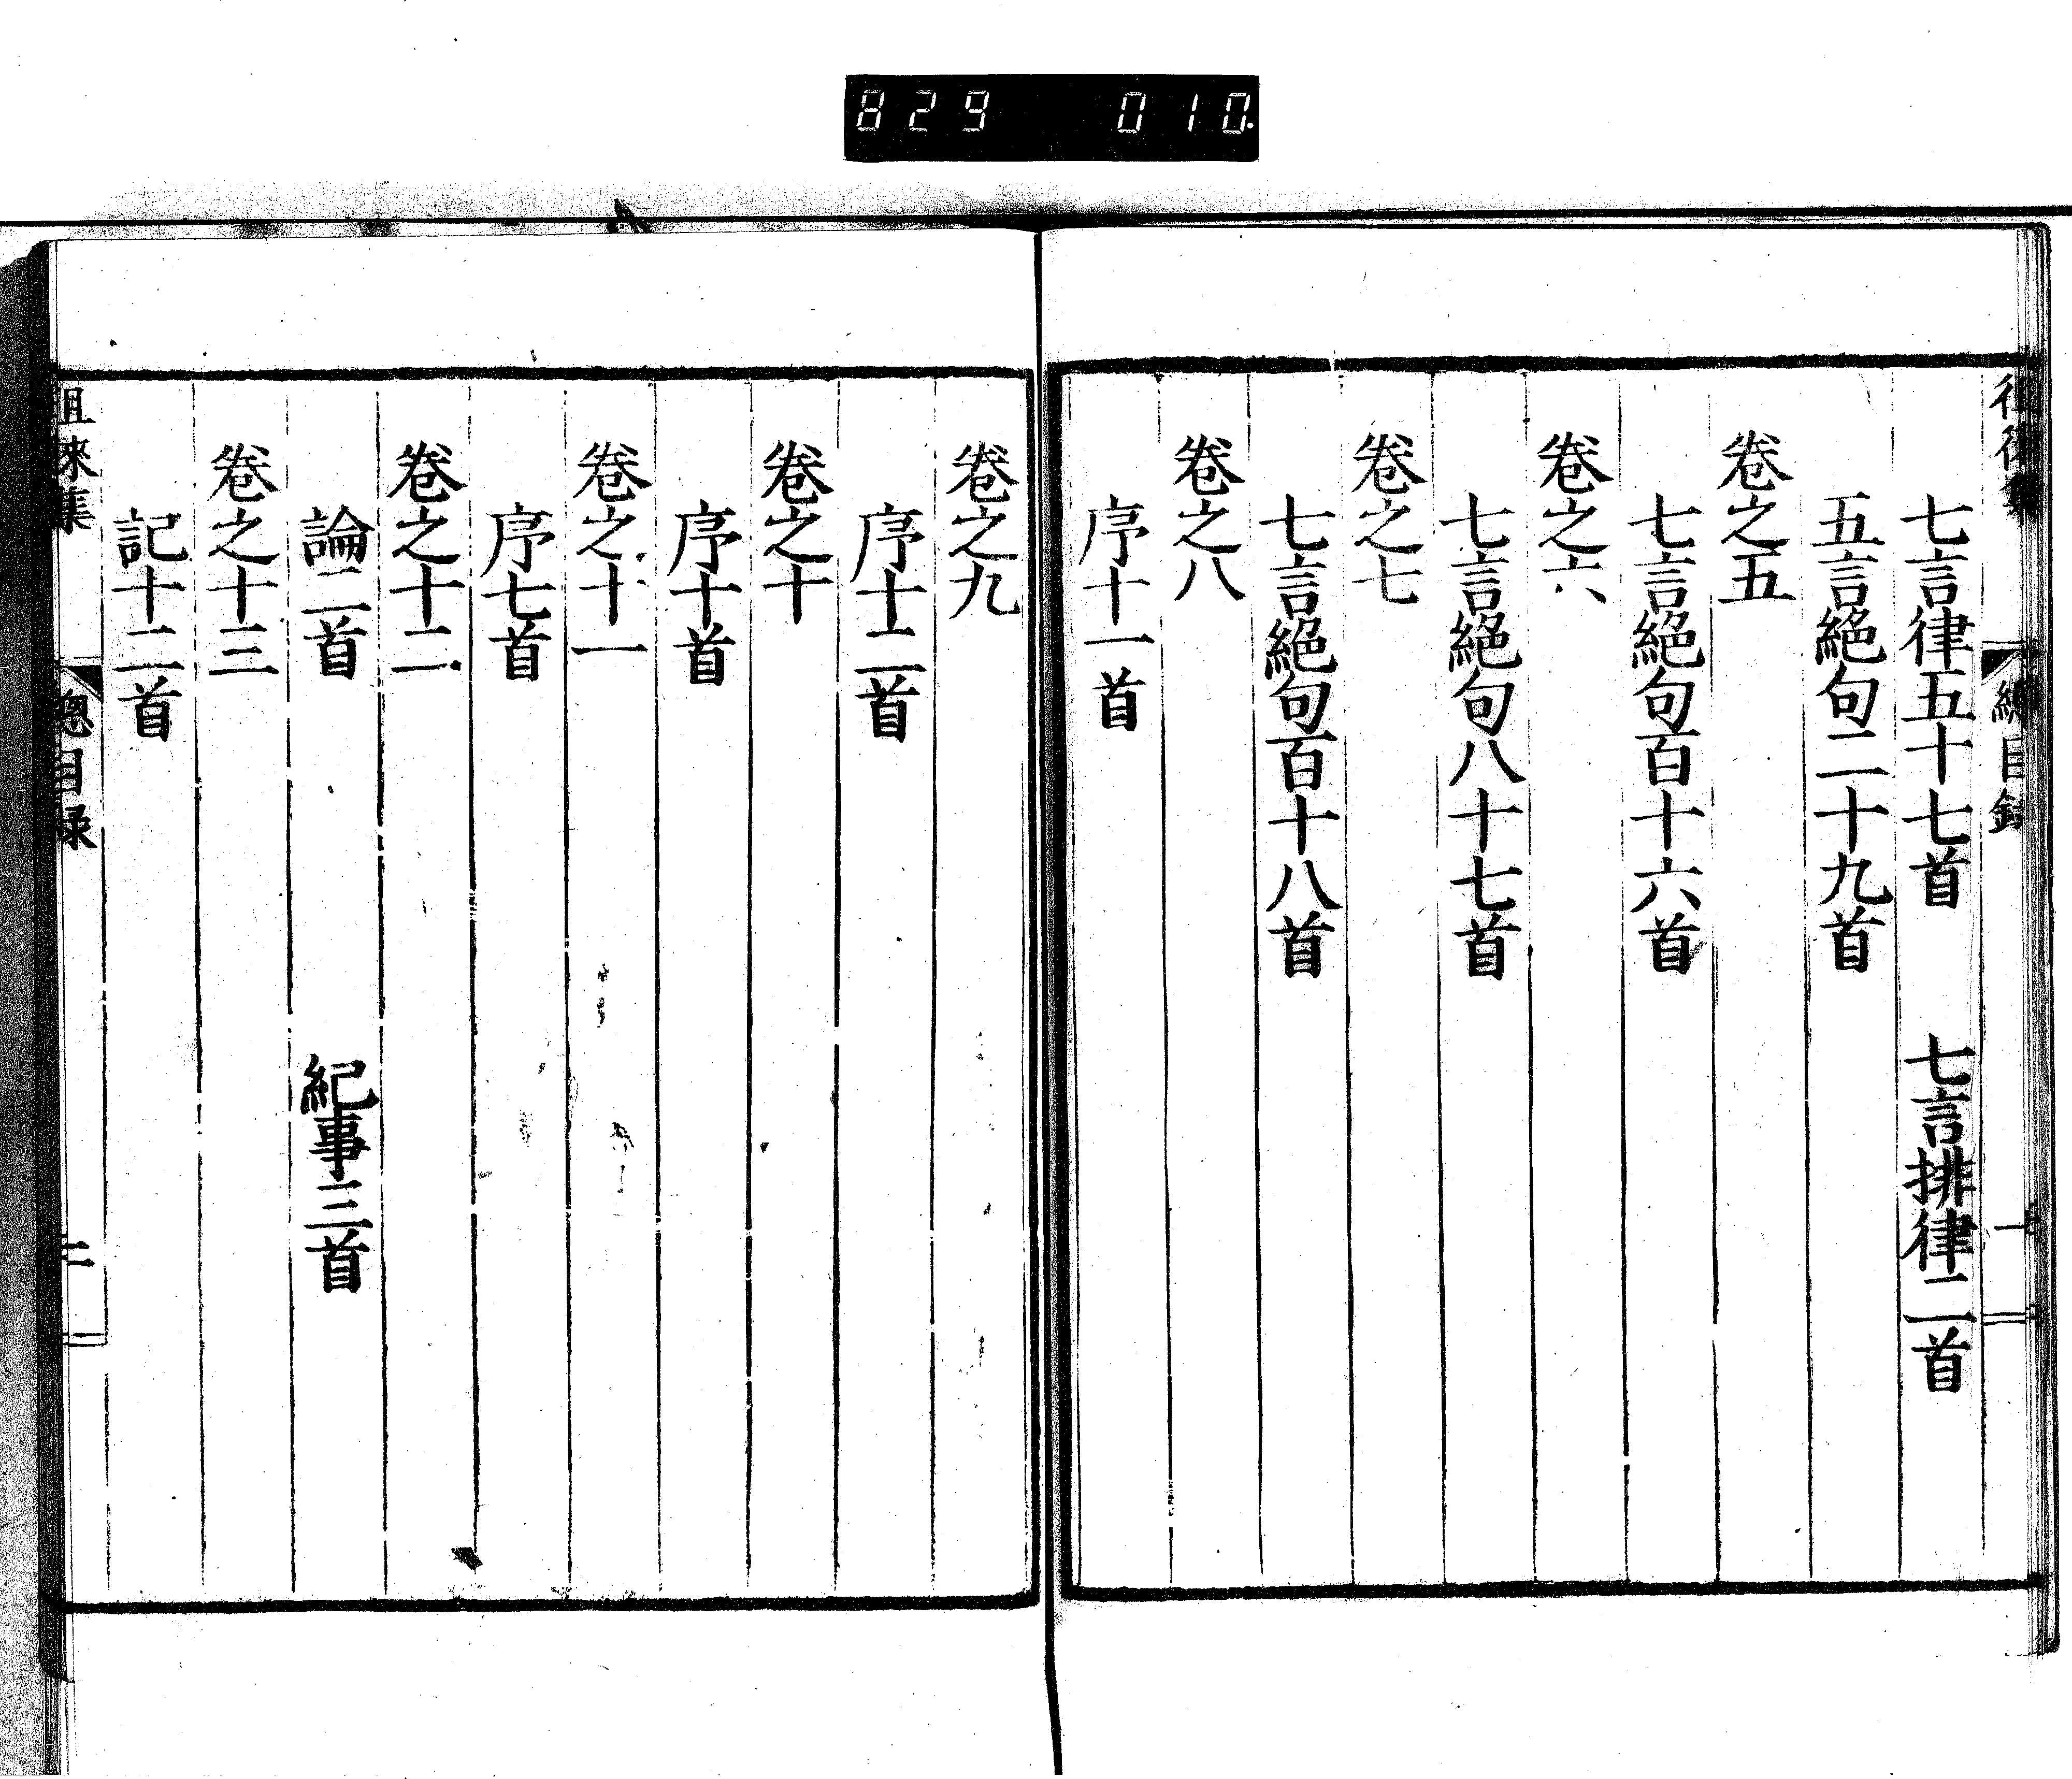 829 010
徂徠集 總目錄 一
七言律五十七首 七言排律二首
五言絕句二十九首
卷之五
七言絕句百十六首
卷之六
七言絕句八十七首
卷之七
七言絕句百十八首
卷之八
序十一首
卷之九
序十二首
卷之十
序十首
卷之十一
序七首
卷之十二
論二首 紀事三首
卷之十三
記十二首
徂徠集 總目錄 二